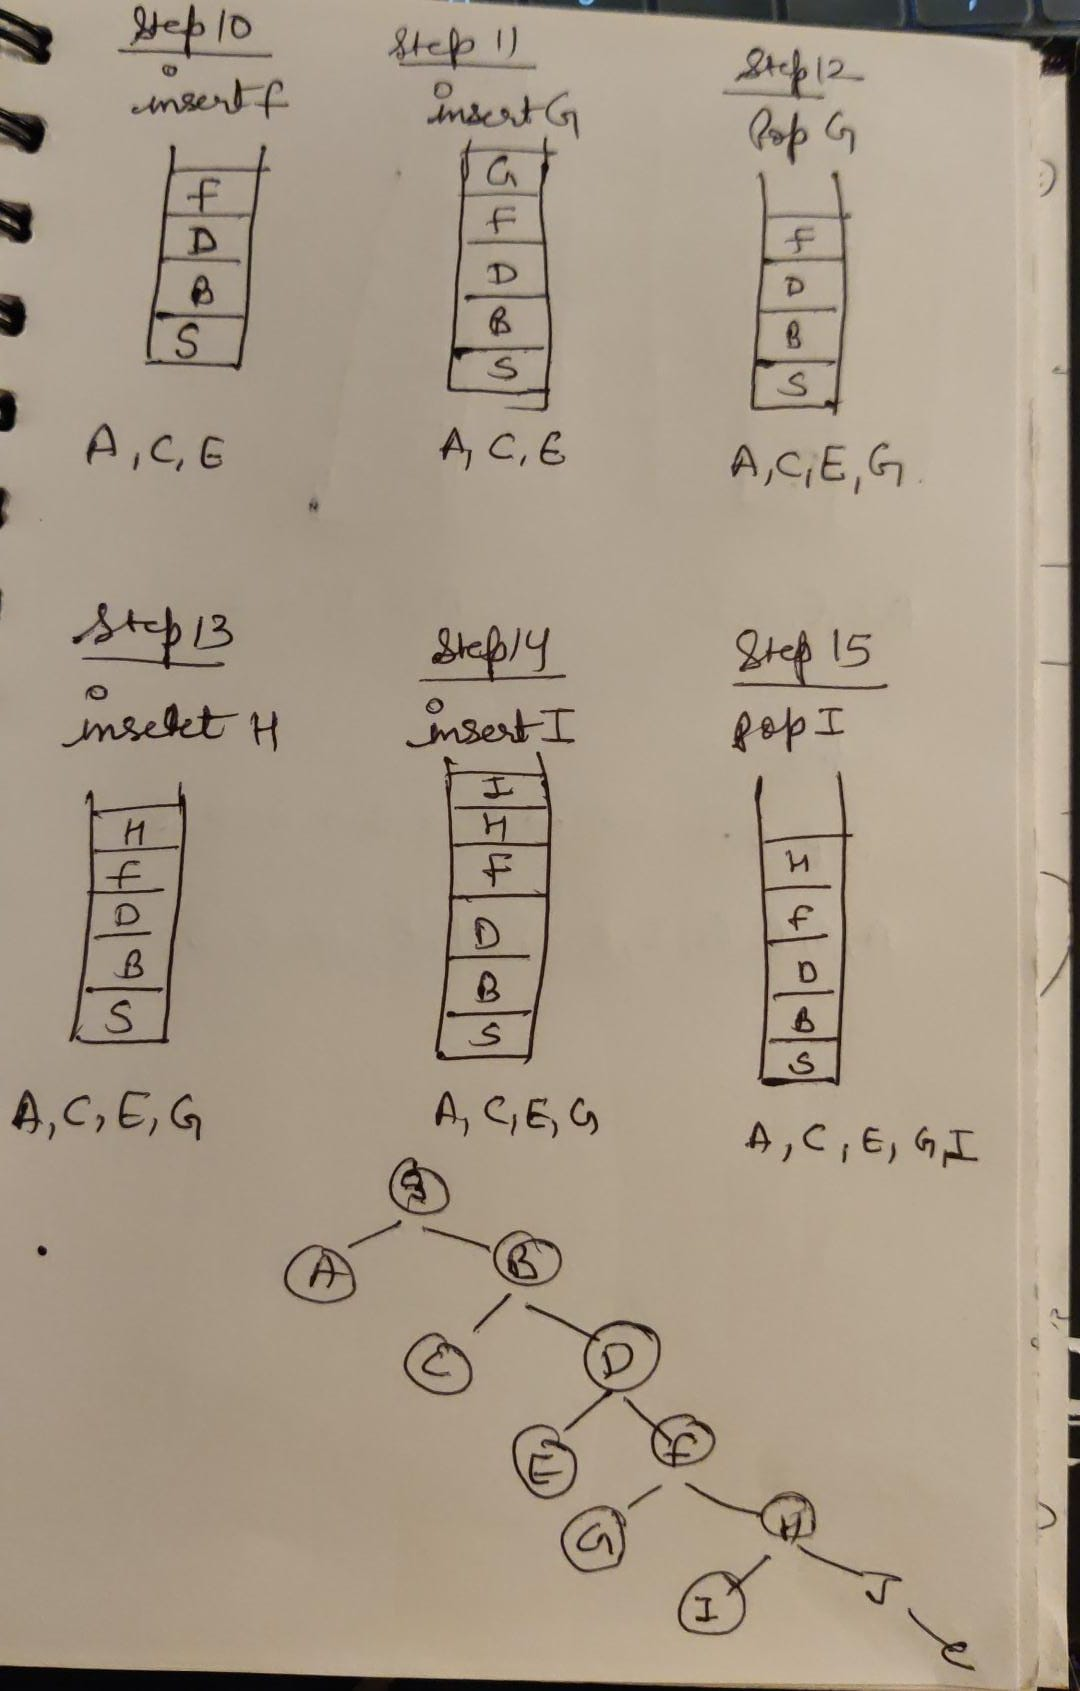 Step 10
insert f
F
D
B
S
A, C, E
Step 11
insert G
G
F
D
B
S
A, C, E
Step 12
Pop G
F
D
B
S
A, C, E, G
Step 13
insert H
H
f
D
B
S
A, C, E, G
Step 14
insert I
I
H
F
D
B
S
A, C, E, G
Step 15
pop I
H
f
D
B
S
A, C, E, G, I
S
A B
C D
E F
G H
I J